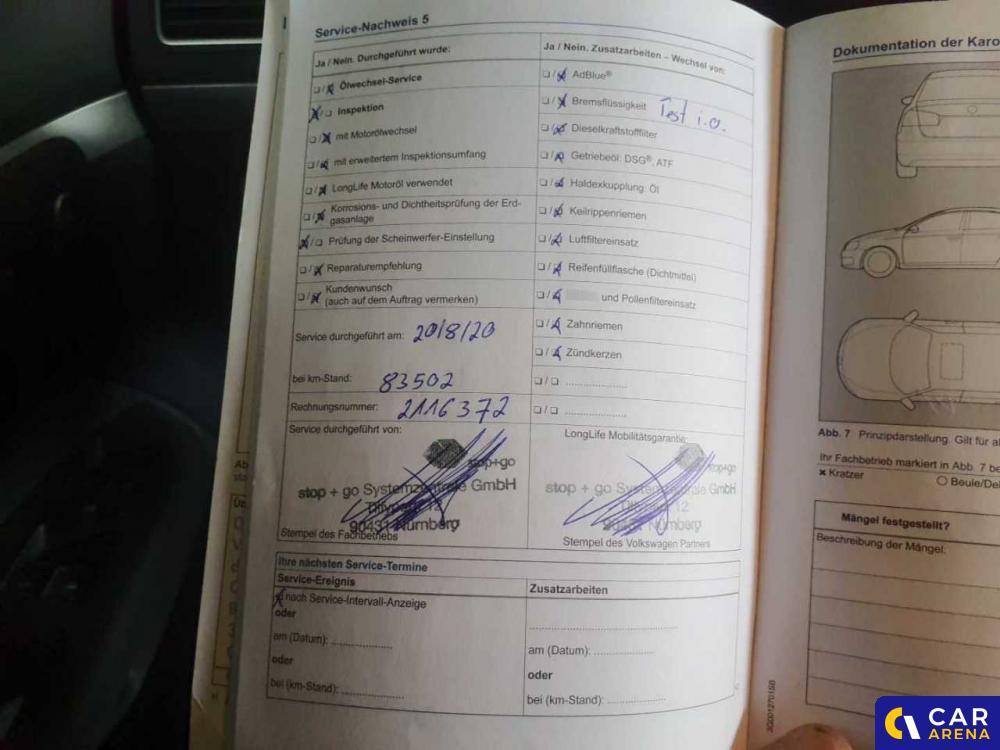 Service-Nachweis 5
Ja / Nein. Durchgeführt wurde:
Ölwechsel-Service
Inspektion
mit Motorölwechsel
mit erweitertem Inspektionsumfang
LongLife Motoröl verwendet
Korrosions- und Dichtheitsprüfung der Erd-
gasanlage
Prüfung der Scheinwerfer-Einstellung
Reparaturempfehlung
Kundenwunsch
(auch auf dem Auftrag vermerken)
Service durchgeführt am: 20/8/20
bei km-Stand: 83502
Rechnungsnummer: 2116372
Service durchgeführt von:
stop+go
stop + go Systemzentrale GmbH
90431 Nürnberg
Stempel des Fachbetriebs
Ja / Nein. Zusatzarbeiten – Wechsel von:
AdBlue®
Bremsflüssigkeit Test i.O.
Dieselkraftstofffilter
Getriebeöl: DSG®, ATF
Haldexkupplung: Öl
Keilrippenriemen
Luftfiltereinsatz
Reifenfüllflasche (Dichtmittel)
und Pollenfiltereinsatz
Zahnriemen
Zündkerzen
LongLife Mobilitätsgarantie:
stop+go
stop + go Systemzentrale GmbH
12
90431 Nürnberg
Stempel des Volkswagen Partners
Ihre nächsten Service-Termine
Service-Ereignis
nach Service-Intervall-Anzeige
oder
am (Datum):
oder
bei (km-Stand):
Zusatzarbeiten
am (Datum):
oder
bei (km-Stand):
Dokumentation der Karo
Abb. 7 Prinzipdarstellung. Gilt für al
Ihr Fachbetrieb markiert in Abb. 7 be
× Kratzer
Beule/Del
Mängel festgestellt?
Beschreibung der Mängel:
3G0012701SB
CAR
ARENA